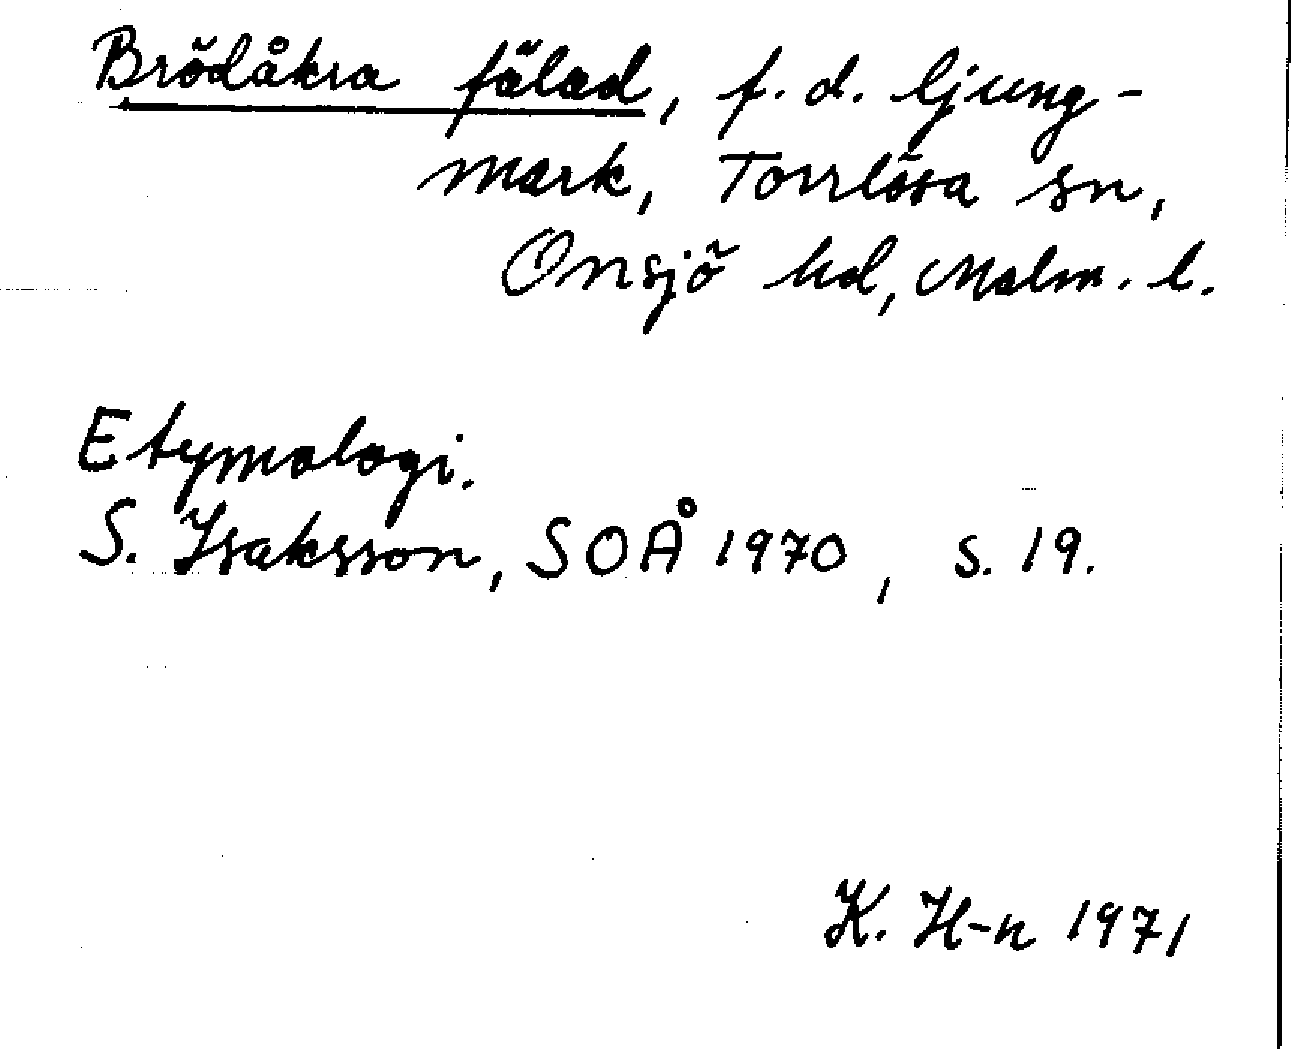 Brödåkra fälad, f. d. ljung-
mark, Torrlösa sn,
Onsjö hd, Malm. l.
Etymologi.
S. Isaksson, SOÅ 1970, s. 19.
K. H-n 1971